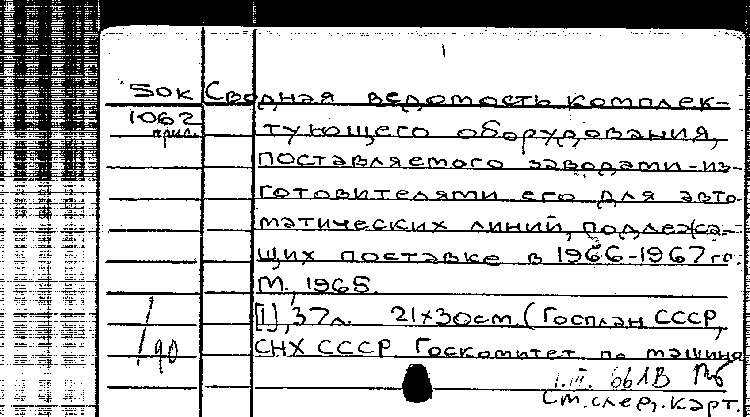 50к Сводная ведомость комплек-
1062 тующего оборудования,
прил.
поставляемого заводами-из-
готовителями его для авто-
матических линий, подлежа-
щих поставке в 1966-1967 гг.
М., 1965.
[1], 37л. 21х30см. (Госплан СССР,
СНХ СССР Госкомитет по машино
1/90
1.III. 66
См. след. карт.